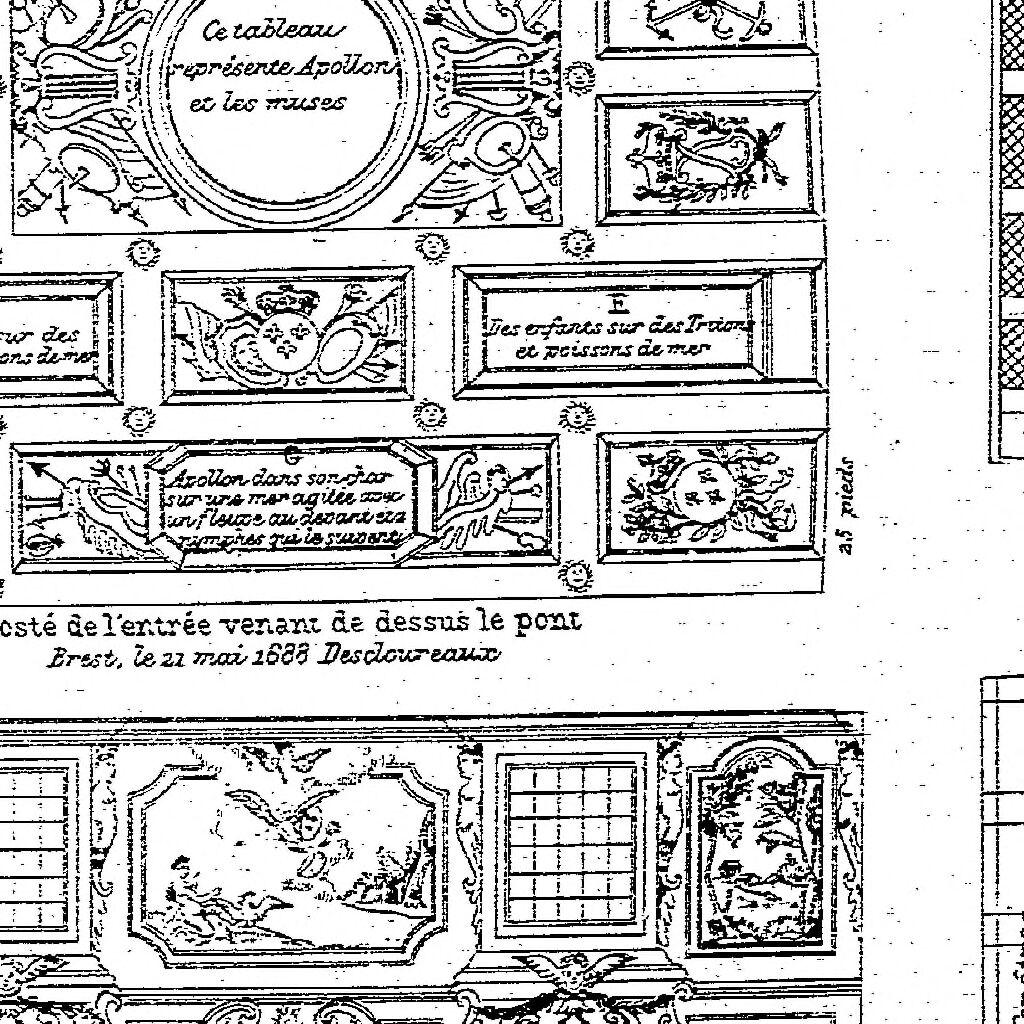 Ce tableau
représente Apollon
et les muses
sur des
ons de mer
E
Des enfants sur des Tritons
et poissons de mer
G
Apollon dans son char
sur une mer agitée avec
un fleuve au devant et a
nymphes qui le suivent
25 pieds
osté de l'entrée venant de dessus le pont
Brest, le 21 mai 1688 Descloureaux